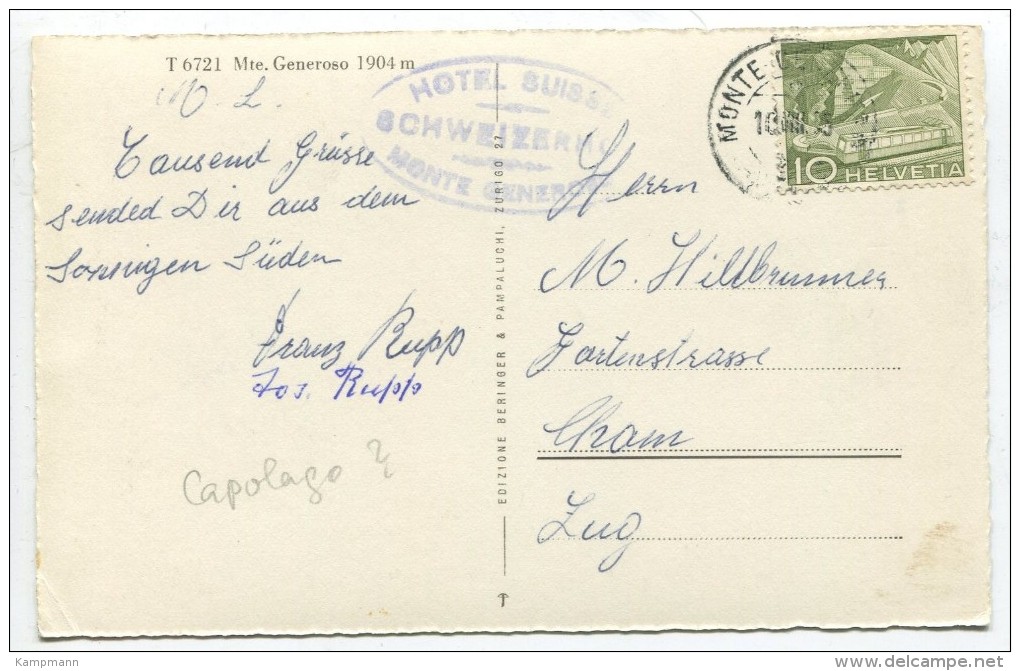 T 6721 Mte. Generoso 1904 m
M. L.
Tausend Grüsse
sended Dir aus dem
Sonnigen Süden
Franz Rupp
Jos. Rupp
Capolago ?
HOTEL SUISSE
SCHWEIZERHO
MONTE GENEROSO
EDIZIONE BERINGER & PAMPALUCHI, ZURIGO 27
MONTE
10
10 HELVETIA
Herrn
M. Hildbrunner
Gartenstrasse
Cham
Zug
Kampmann
www.delcampe.net